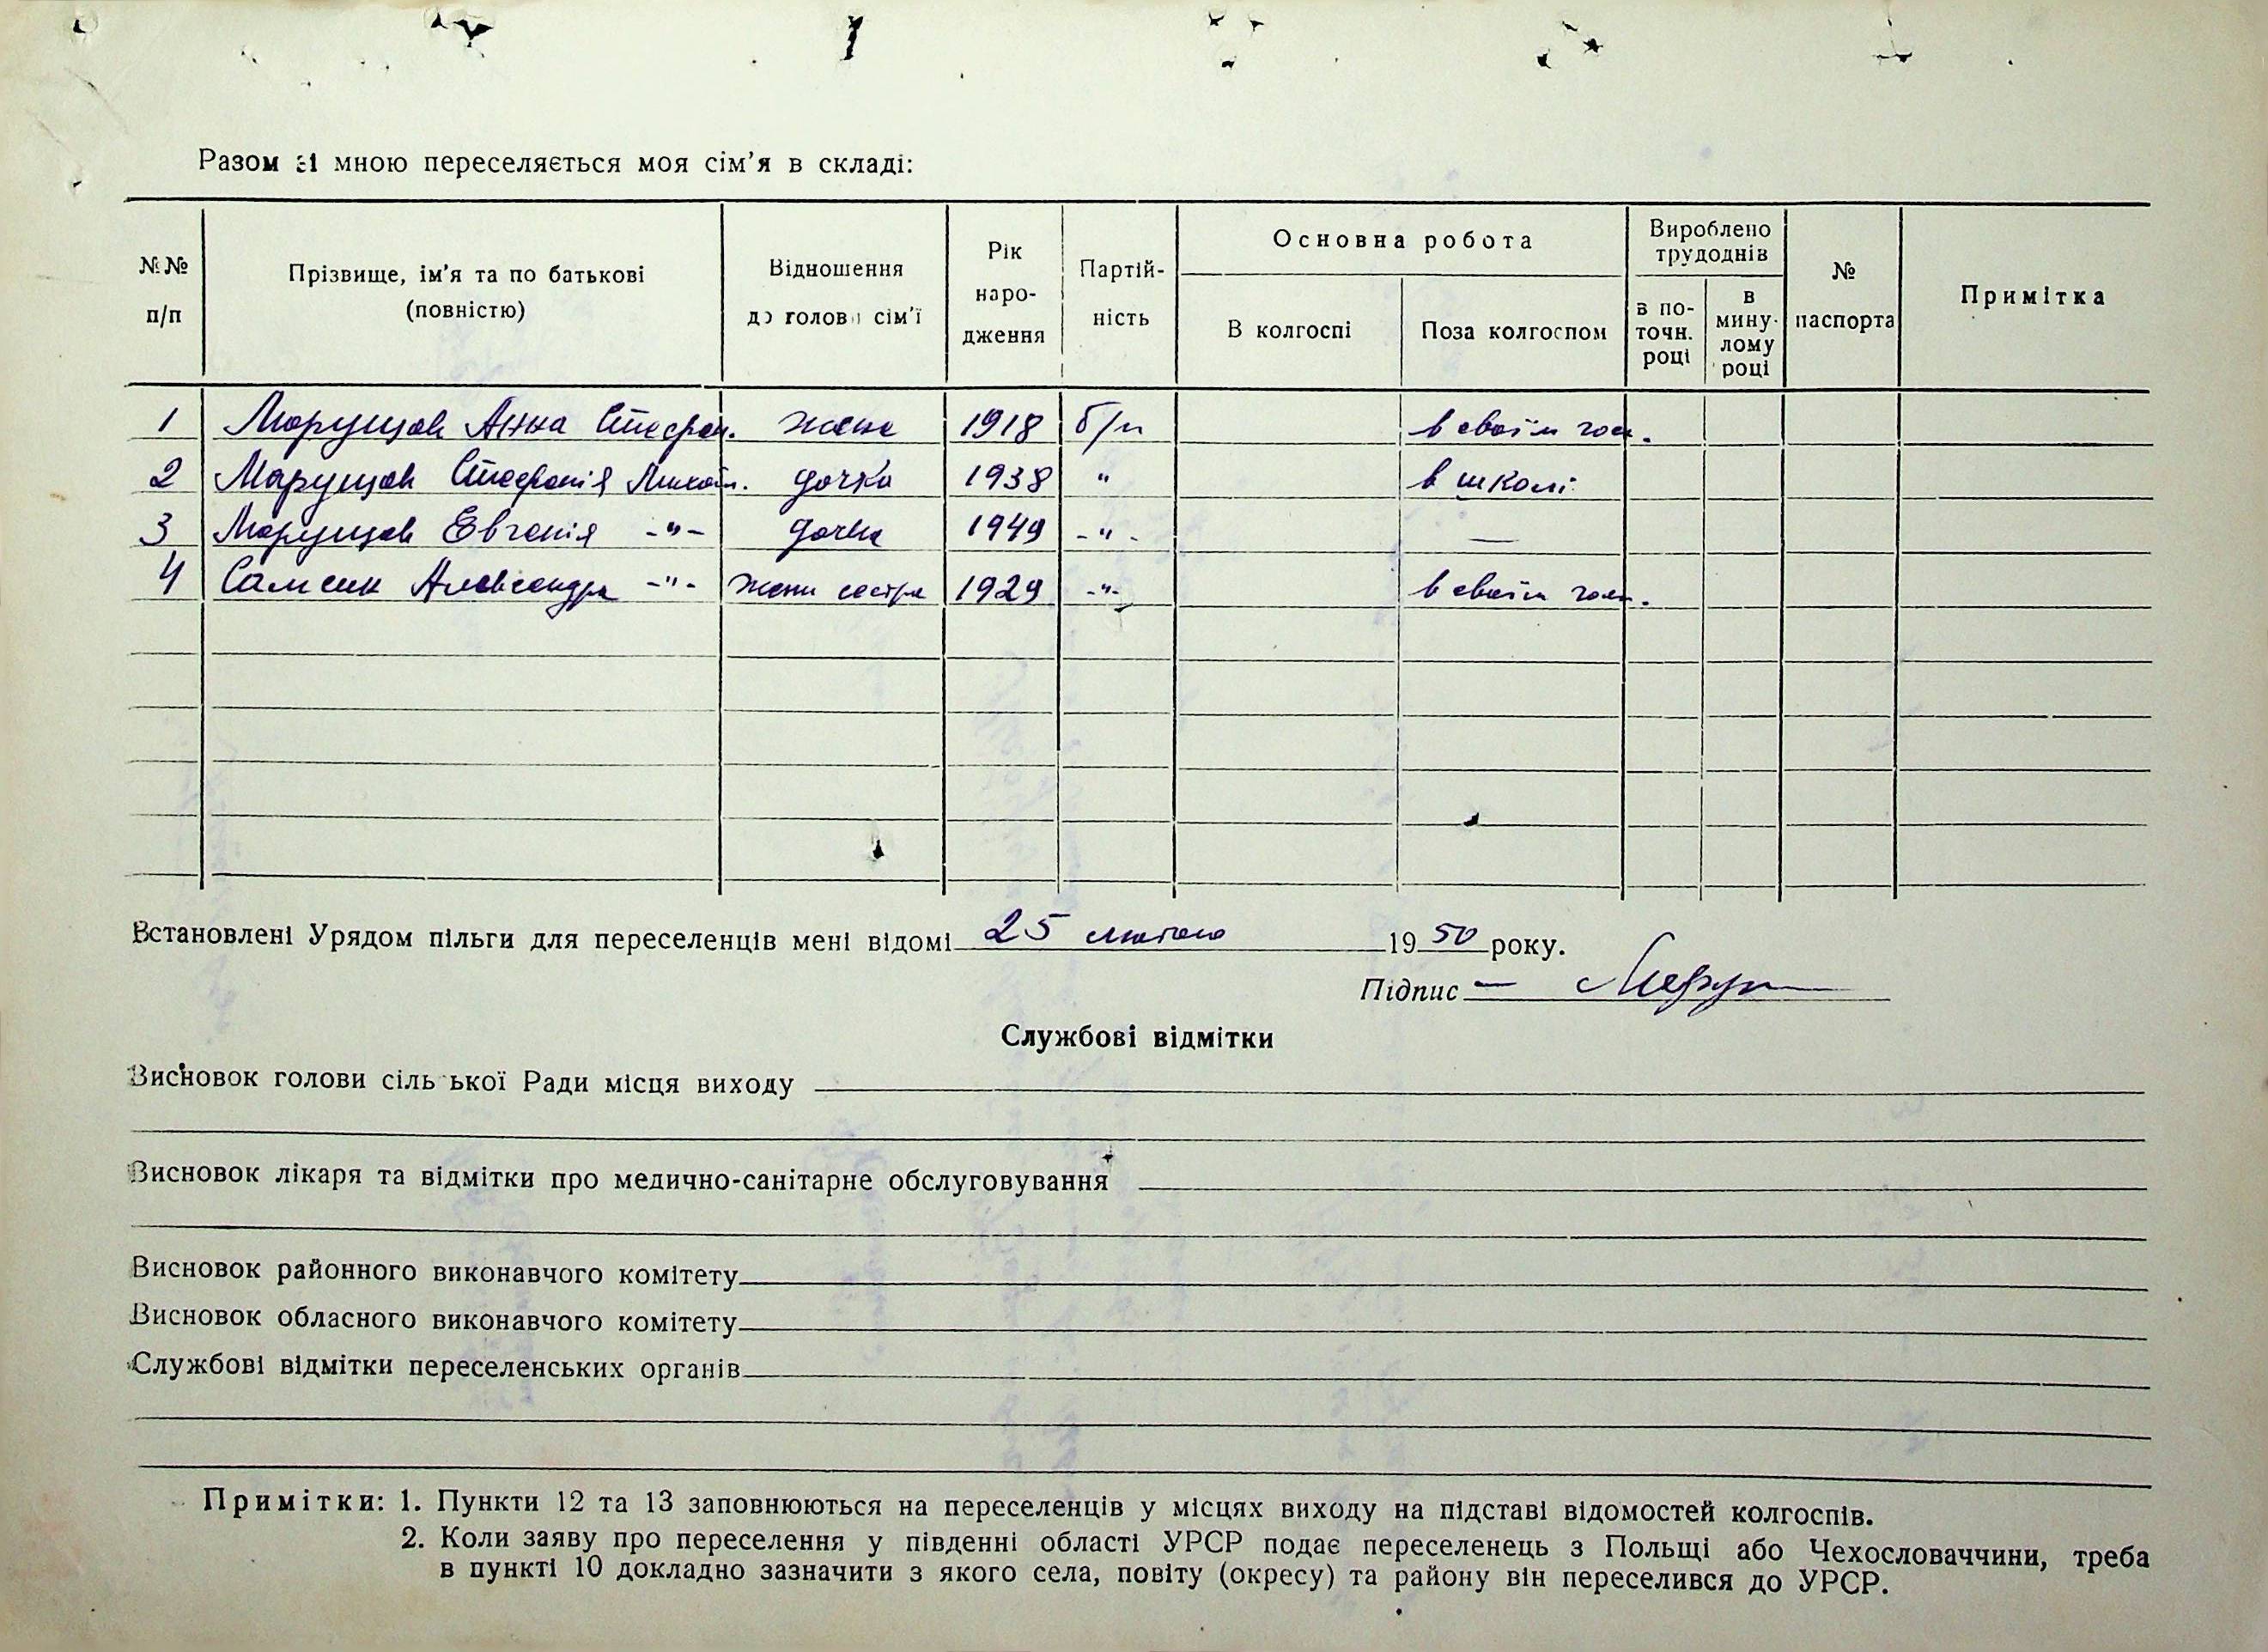 Разом зі мною переселяється моя сім'я в складі:
№№ п/п
Прізвище, ім'я та по батькові (повністю)
Відношення до голови сім'ї
Рік народження
Партійність
Основна робота
В колгоспі
Поза колгоспом
Вироблено трудоднів
в поточн. році
в минулому році
№ паспорта
Примітка
1 Марущак Анна Стефан. жена 1918 б/п в своїм гос.
2 Марущак Стефанія Михайл. дочка 1938 " в школі
3 Марущак Евгенія -"- дочка 1949 -"- —
4 Александра -"- жени сестра 1929 -"- в своїм госп.
Встановлені Урядом пільги для переселенців мені відомі 25 лютого 1950 року.
Підпис —
Службові відмітки
Висновок голови сільської Ради місця виходу
Висновок лікаря та відмітки про медично-санітарне обслуговування
Висновок районного виконавчого комітету
Висновок обласного виконавчого комітету
Службові відмітки переселенських органів
Примітки: 1. Пункти 12 та 13 заповнюються на переселенців у місцях виходу на підставі відомостей колгоспів.
2. Коли заяву про переселення у південні області УРСР подає переселенець з Польщі або Чехословаччини, треба
в пункті 10 докладно зазначити з якого села, повіту (окресу) та району він переселився до УРСР.